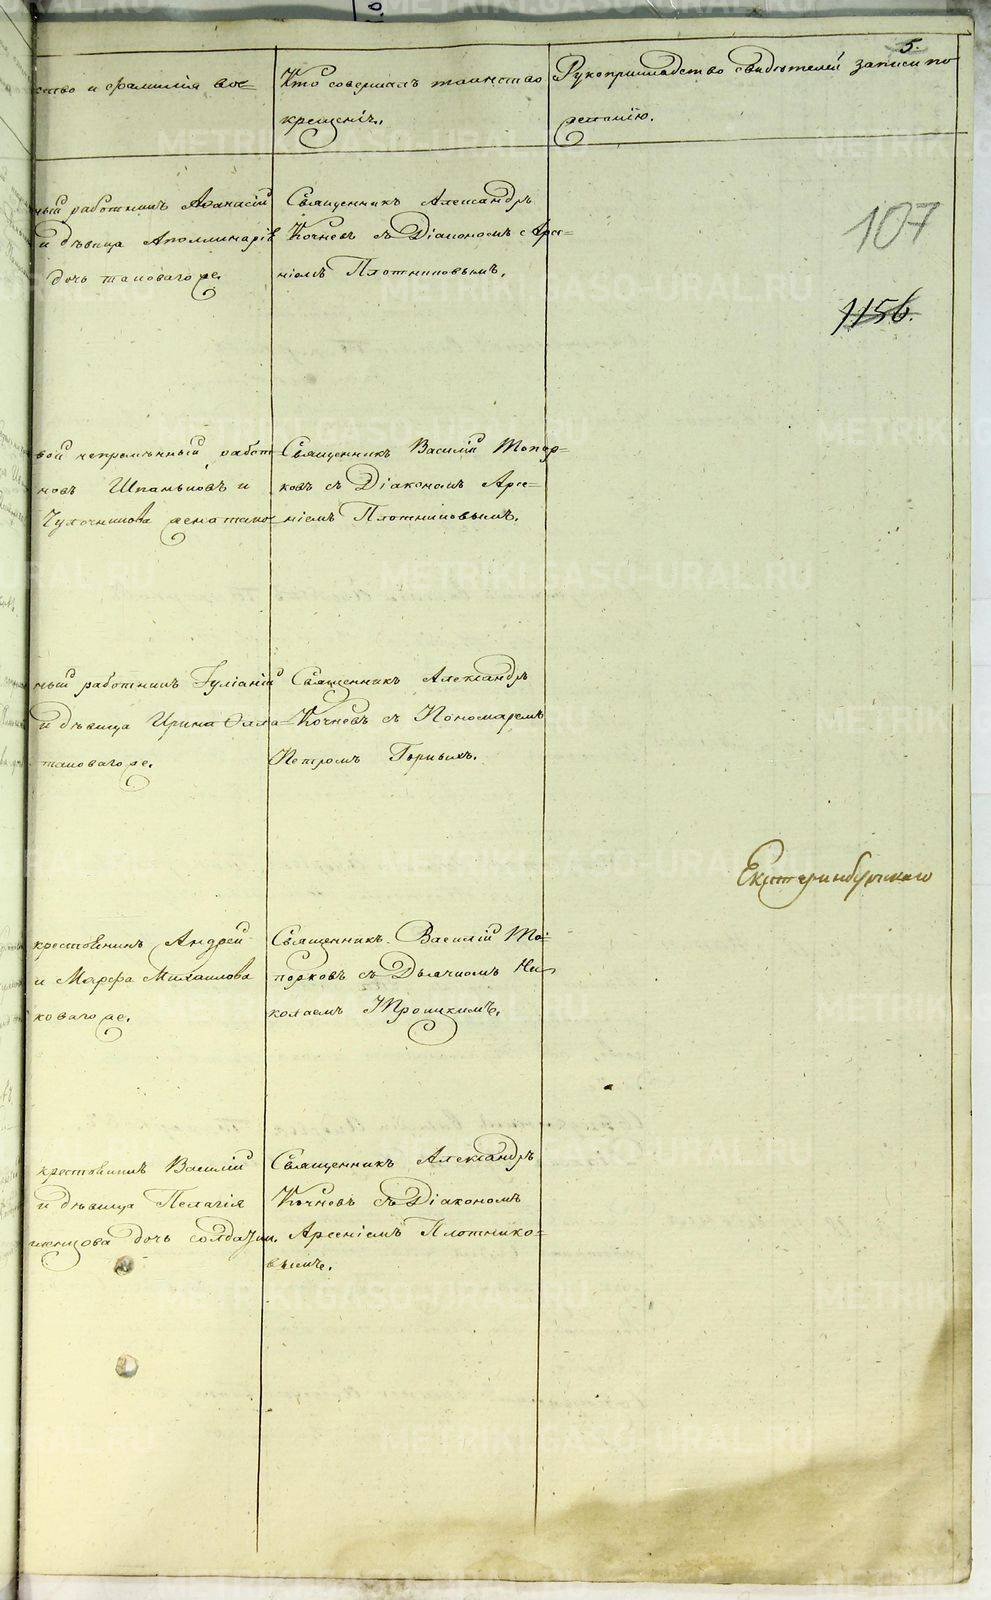 5.
ство и фамилія вос=
Кто совершалъ таинство
крещенія.
Рукоприкладство свидѣтелей записи по
желанію.
107
1156.
ный работникъ Аѳанасій
и дѣвица Аполлинарія
дочь таковаго же.
Священникъ Александръ
Кочневъ съ Діакономъ Арсе-
ніемъ Плотниковымъ.
вой непремѣнный работ
новъ Шпаньковъ и
жена тако-
Священникъ Василій Топор=
ковъ съ Діакономъ Арсе=
ніемъ Плотниковымъ.
ный работникъ Іуліаній
и дѣвица Ирина
таковаго же.
Священникъ Александръ
Кочневъ съ Пономаремъ
Петромъ Горныхъ.
Екатеринбургскаго
крестьянинъ Андрей
и Марѳа Михаилова
коваго же.
Священникъ Василій То=
порковъ съ Дьячкомъ Ни
колаемъ Троицкимъ.
крестьянинъ Василій
и дѣвица Пелагія
дочь солдат
Священникъ Александръ
Кочневъ съ Діакономъ
Арсеніемъ Плотнико=
вымъ.
METRIKI.GASO-URAL.RU